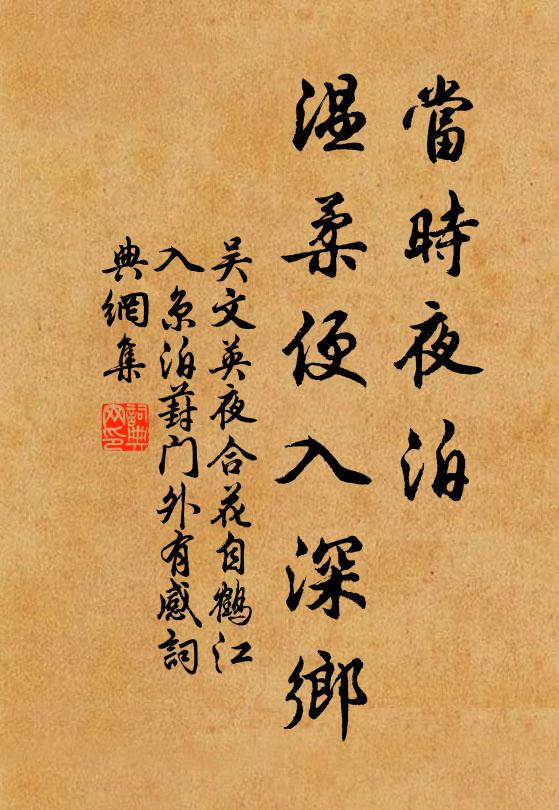 當時夜泊
温柔便入深鄉
吴文英夜合花自鶴江
入京泊葑門外有感詞
典網集
詞典網印